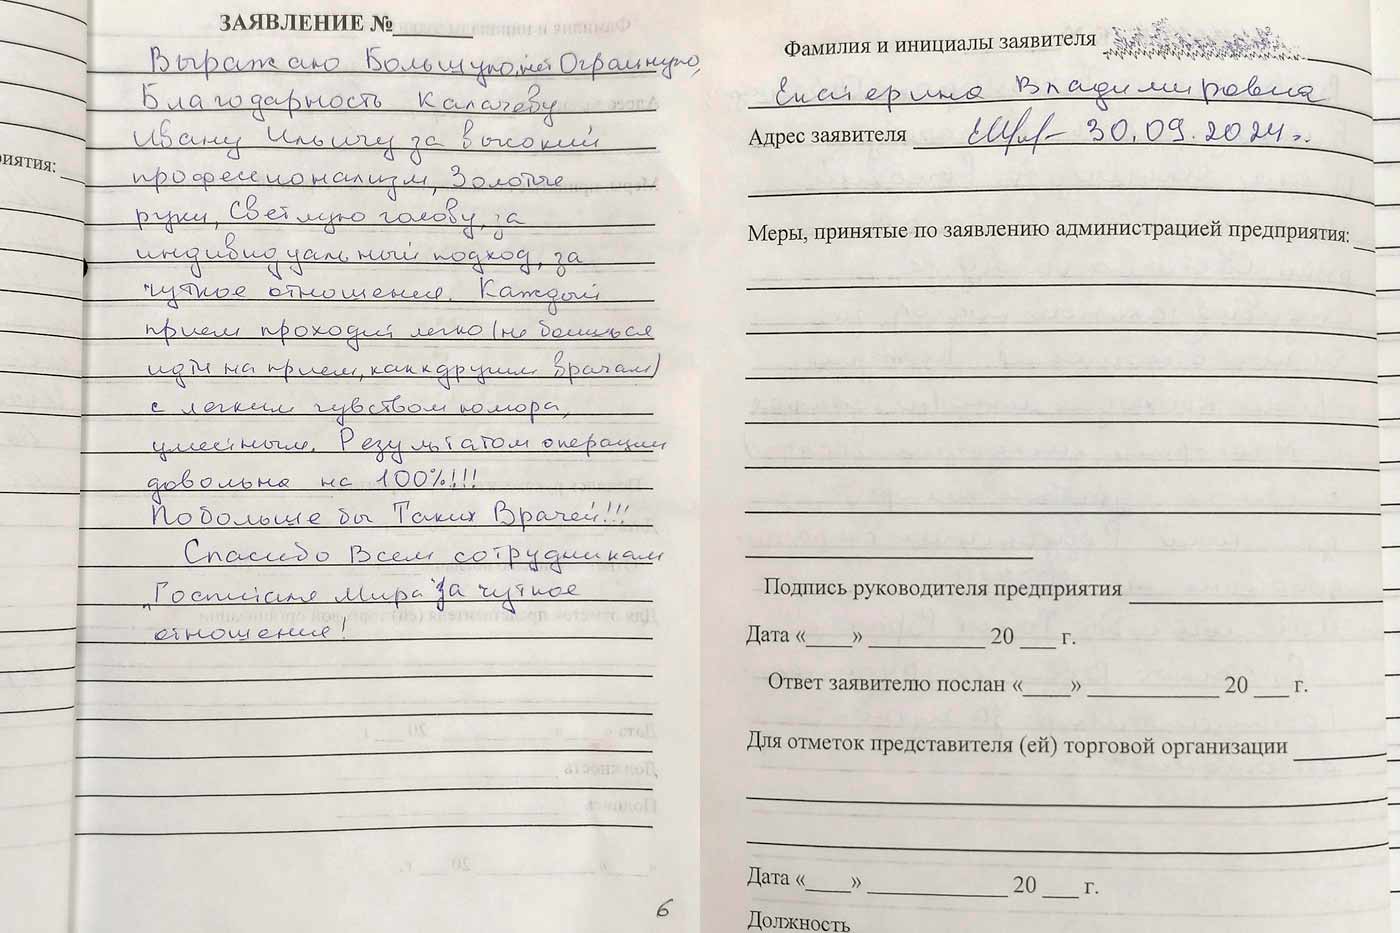 ЗАЯВЛЕНИЕ №
Выражаю Большую, нет Огромную,
Благодарность Калачёву
Ивану Ильичу за высокий
профессионализм, Золотые
руки, Светлую голову, за
индивидуальный подход, за
чуткое отношение. Каждый
прием проходит легко (не боишься
идти на прием, как к другим врачам)
с легким чувством юмора,
уместным. Результатом операции
довольна на 100%!!!
Побольше бы Таких Врачей!!!
Спасибо Всем сотрудникам
"Госпиталя Мира" за чуткое
отношение!
6
риятия:
Фамилия и инициалы заявителя
Екатерина Владимировна
Адрес заявителя 30.09.2024г.
Меры, принятые по заявлению администрацией предприятия:
Подпись руководителя предприятия
Дата «____» __________ 20 ___ г.
Ответ заявителю послан «____» ___________ 20 ___ г.
Для отметок представителя (ей) торговой организации
Дата «____» ____________ 20 ___ г.
Должность